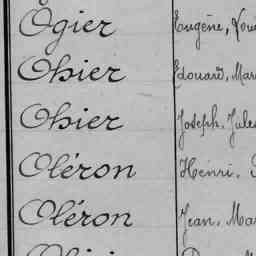 Ogier Eugène,
Ohier Edouard, Mar
Ohier Joseph, Jules
Oléron Henri,
Oléron Jean, Mar